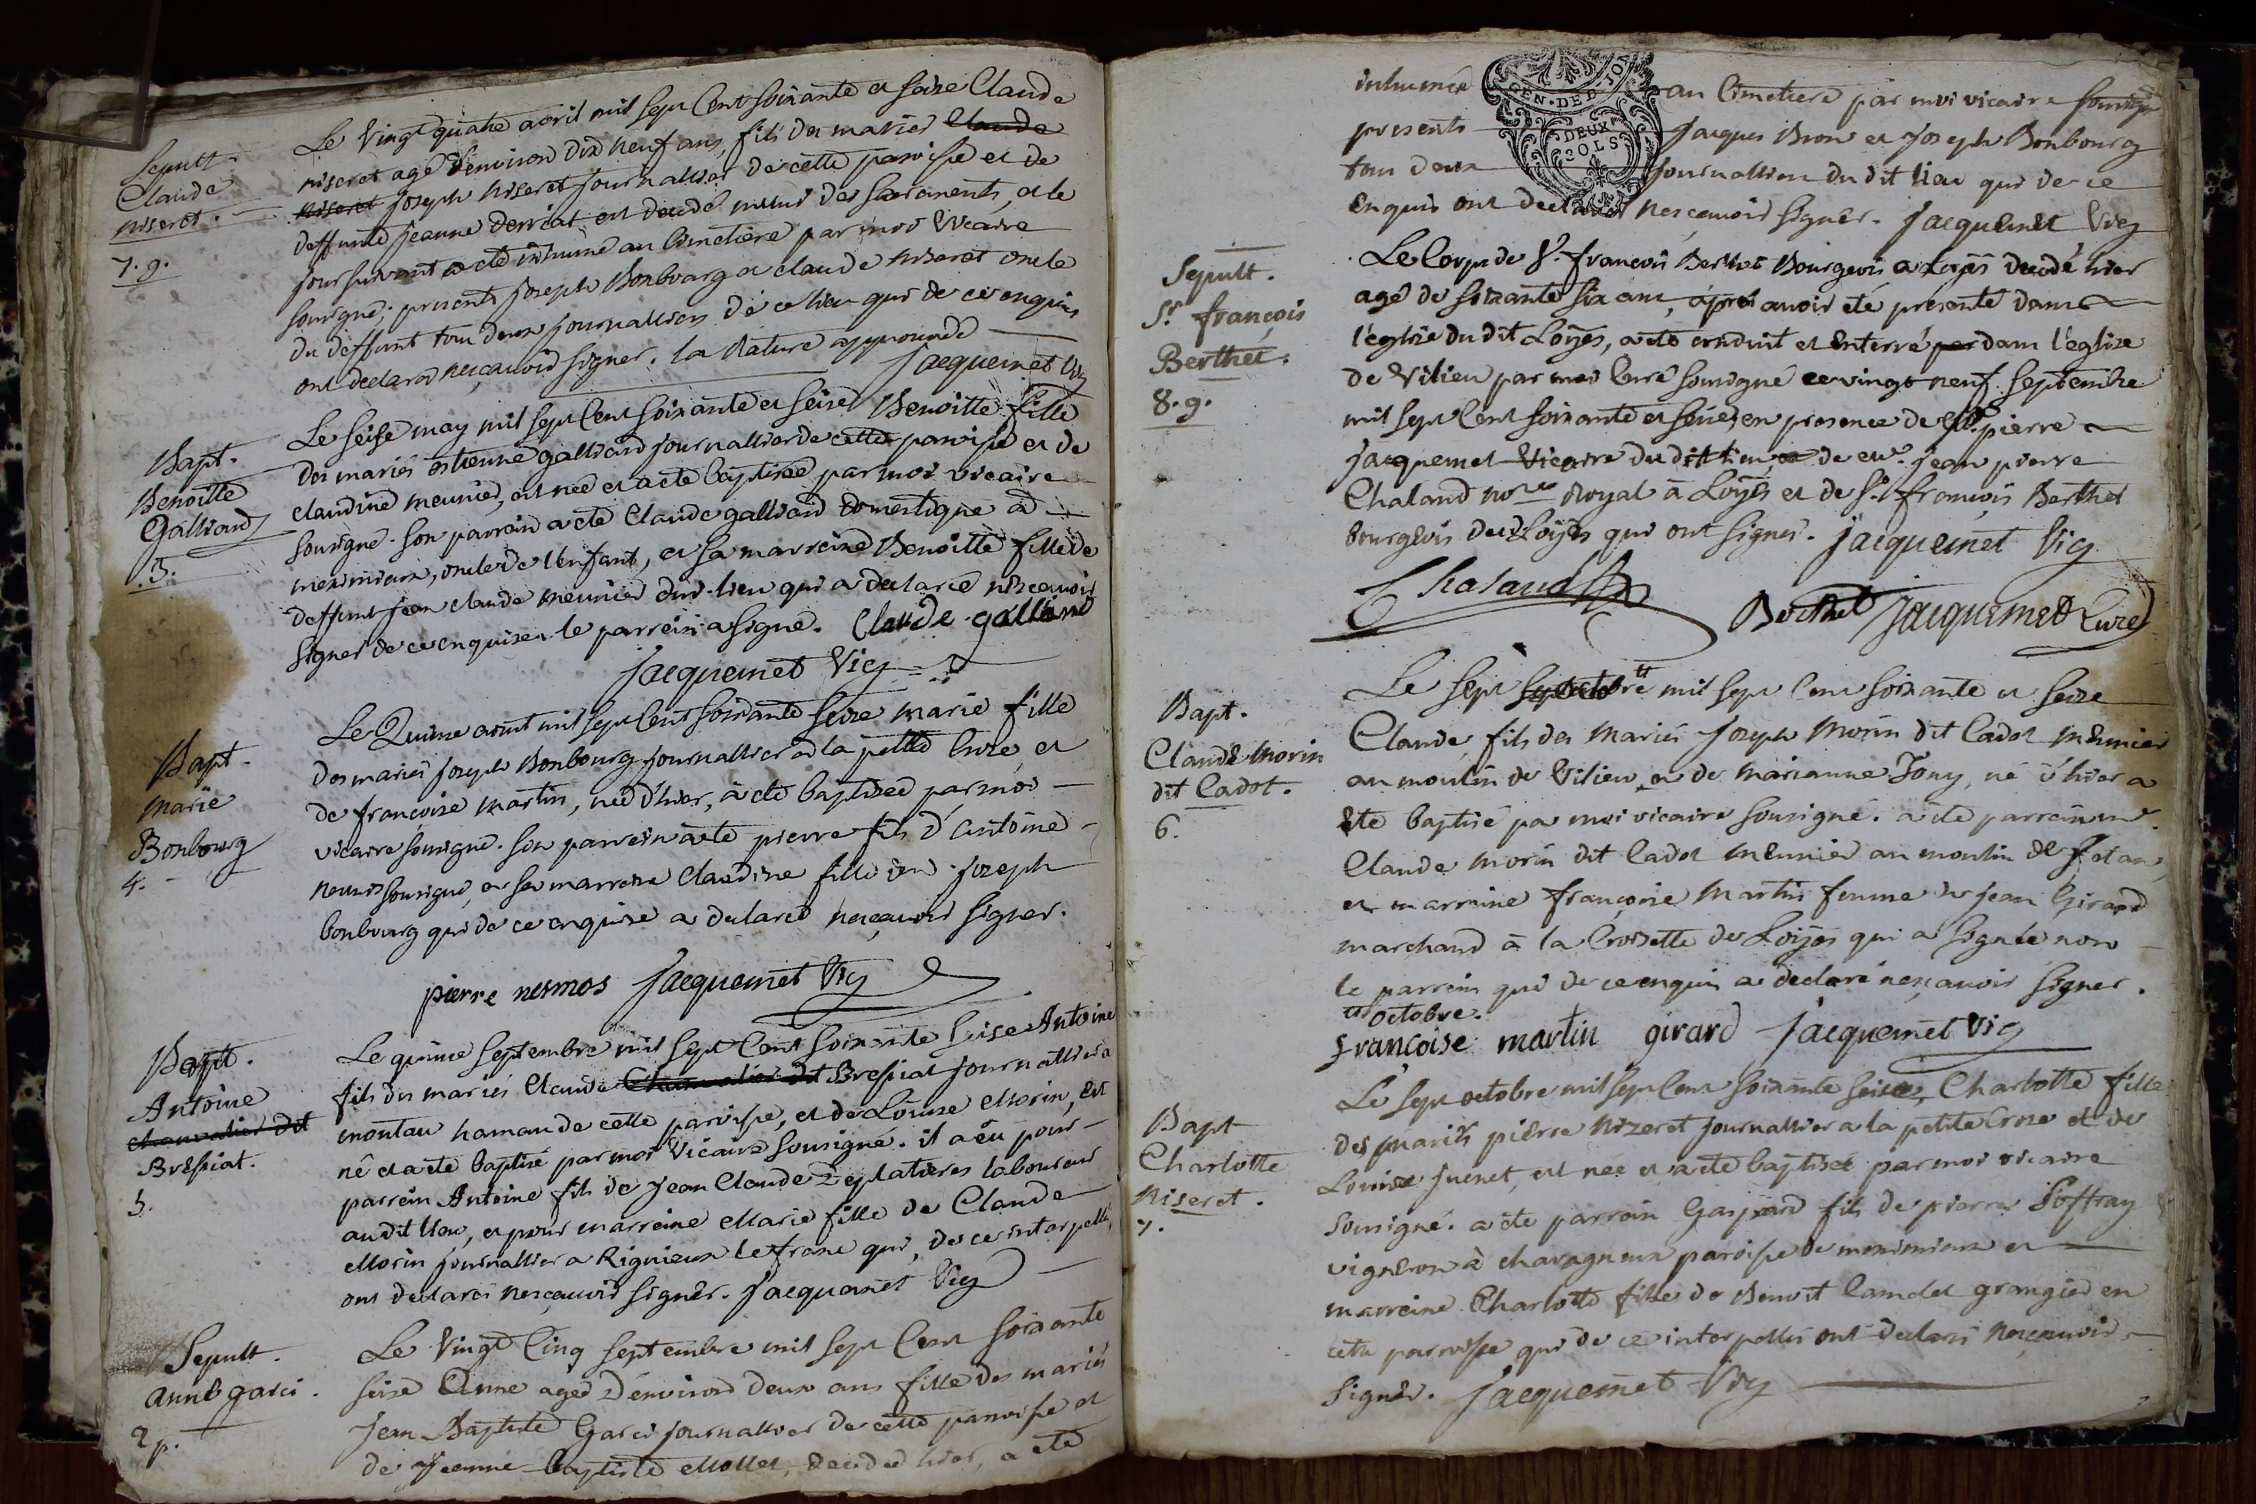 Sepult.
Claude
niseret.
7. g.
Le vingt quatre avril mil sept cent soixante et seize Claude
niseret agé d'environ dix neuf ans, fils des mariés Claude
niseret joseph niseret journallier de cette paroisse et de
deffunte jeanne derriat est decedé muni des sacrements, et le
jour suivant a eté inhumé au cimetiere par moi vicaire
sousigné; presents joseph Bonbourg et claude niseret oncle
du deffunt tous deux journalliers de ce lieu qui de ce enquis
ont declaré nesçavoir signer. la rature approuvée
jacquemet vic
Bapt.
Benoitte
Galliard
3.
Le seise may mil sept cent soixante et seise Benoitte fille
des mariés estienne galliard journallier de cette paroisse et de
claudine meunier, est née et a eté baptisée par moi vicaire
sousigné. son parrain a eté claude galliard domestique à
meximieux, oncle de l'enfant, et sa marreine Benoitte fille de
deffunt jean claude meunier dud. lieu qui a declaré nesçavoir
signer de ce enquise. le parrein a signé. Claude galliard
jacquemet vic
Bapt.
Marie
Bonbourg
4.
Le Quinze aout mil sept cent soixante seize marie fille
des mariés joseph Bonbourg journallier a la petite Croze, et
de françoise martin, née d'hier, a eté baptisée par moi
vicaire sousigné. son parrein a eté pierre fils d'antoine
nemos sousigné, et sa marreine claudine fille dud. joseph
bonbourg qui de ce enquise a declaré nesçavoir signer.
pierre nemos jacquemet vic
Bapt.
Antoine
chauvalier dit
Bressiat.
5.
Le quinze septembre mil sept cent soixante seise Antoine
fils des mariés Claude Chauvalier dit Bressiat journallier a
montau hamau de cette paroisse, et de Louise Morin, est
né et a eté baptisé par moi vicaire sousigné. il a eu pour
parrein Antoine fils de jean Claude Desplatieres laboureur
audit lieu, et pour marreine Marie fille de Claude
Morin journallier a Rignieux le franc qui, de ce interpellés,
ont declaré nesçavoir signer. jacquemet vic
Sepult.
anne garci.
2 p.
Le vingt Cinq septembre mil sept cent soixante
seize Anne agée d'environ deux ans fille des mariés
jean Baptiste Garci journallier de cette paroisse et
de jeanne baptiste Mollet, decedée hier, a eté
inhumée au cimetiere par moi vicaire sousigné
presents jacques Bron et joseph Bonbourg
tous deux journalliers du dit lieu qui de ce
enquis ont declaré nesçavoir signer. jacquemet vic
GEN. DE DIJON
DEUX
SOLS
Sepult.
Sr. françois
Berthet.
8. g.
Le corps de Sr. françois Berthet Bourgeois a Loyes decedé hier
agé de soixante six ans, après avoir eté presenté dans
l'eglise du dit Loyes, a eté conduit et enterré par dans l'eglise
de Vilieu par moi Curé sousigné ce vingt neuf septembre
mil sept cent soixante et seize en presence de Mre. pierre
jacquemet vicaire du dit lieu, de jean pierre
Chaland nore royal à Loyes et de Sr. françois Berthet
bourgeois dud. Loyes qui ont signés. jacquemet vic
Chaland
Berthet jacquemet Curé
Bapt.
Claude Morin
dit Cadot.
6.
Le sept septembre mil sept cent soixante et seize
Claude, fils des mariés joseph Morin dit Cadot meunier
au moulin de Vilieu, et de marianne Jony, né d'hier a
eté baptisé par moi vicaire sousigné. a eté parrein
Claude morin dit Cadot meunier au moulin de Jotan,
et marreine françoise Martin femme de jean Girard
marchand à la Croisette de Loyes qui a signée non
le parrein qui de ce enquis a declaré nesçavoir signer.
octobre.
francoise martin girard jacquemet vic
Bapt
Charlotte
Niseret.
7.
Le sept octobre mil sept cent soixante seize, Charlotte fille
des mariés pierre Nizeret journallier a la petite Croze et de
Louise juenet, est née et a eté baptisée par moi vicaire
sousigné. a eté parrein Gaspard fils de pierre Joffray
vigneron à chavagneux paroisse de meximieux et
marreine Charlotte fille de Benoit Camdet grangier en
cette paroisse qui de ce interpellés ont declaré nesçavoir
signer. jacquemet vic